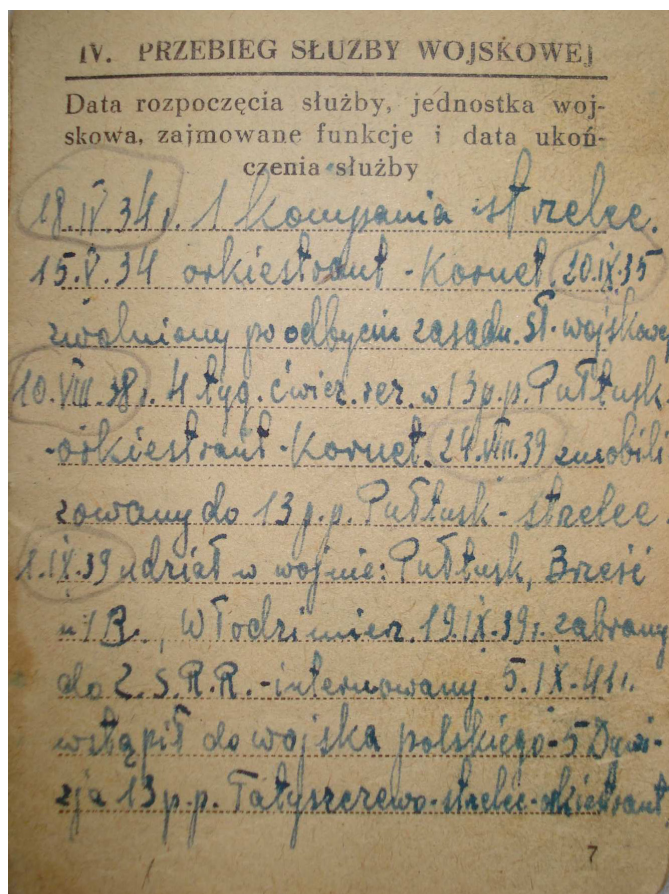 IV. PRZEBIEG SŁUŻBY WOJSKOWEJ
Data rozpoczęcia służby, jednostka woj-
skowa, zajmowane funkcje i data ukoń-
czenia służby
18.IV.34r. 1 kompania strzelec.
15.V.34 orkiestrant - Kornet. 20.IX.35
zwolniony po odbyciu zasadn. sł. wojskowej
10.VIII.38r. 4 tyg. ćwicz. rez. w 13 p.p. Pułtusk.
-orkiestrant - Kornet. 24.VIII.39 zmobili
zowany do 13 p.p. Pułtusk - strzelec
1.IX.39 udział w wojnie: Pułtusk, Brześć
n/B., Włodzimierz. 19.IX.39r. zabrany
do Z.S.R.R. - internowany. 5.IX.41r.
wstąpił do wojska polskiego - 5 Dywi-
zja 13 p.p. Tatyszczewo - strzelec - orkiestrant
7